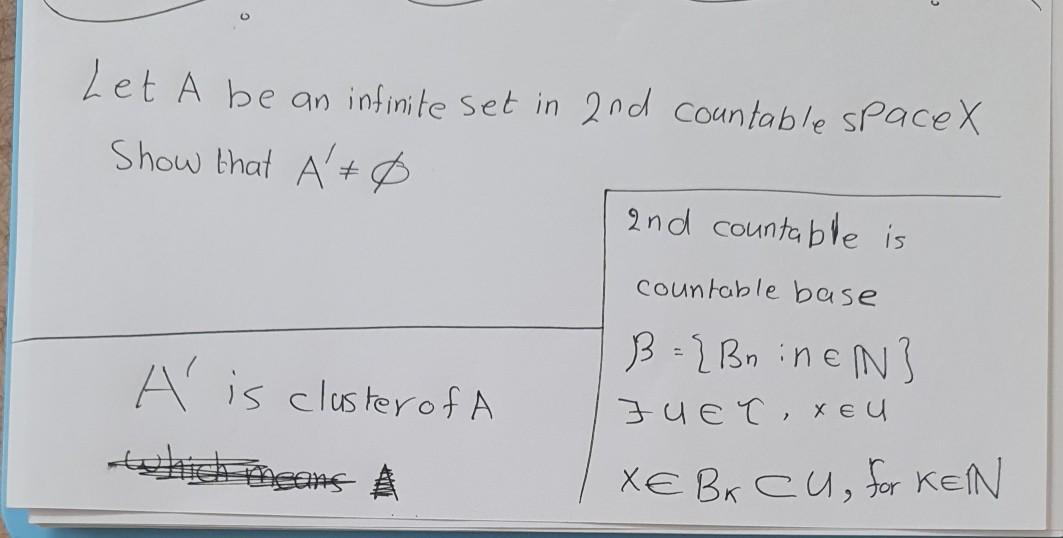 Let A be an infinite set in 2nd countable space X
Show that A' ≠ ∅
2nd countable is
countable base
β = {Bn : n ∈ ℕ}
∃ U ∈ τ, x ∈ U
x ∈ Bκ ⊂ U, for κ ∈ ℕ
A' is cluster of A
which means A